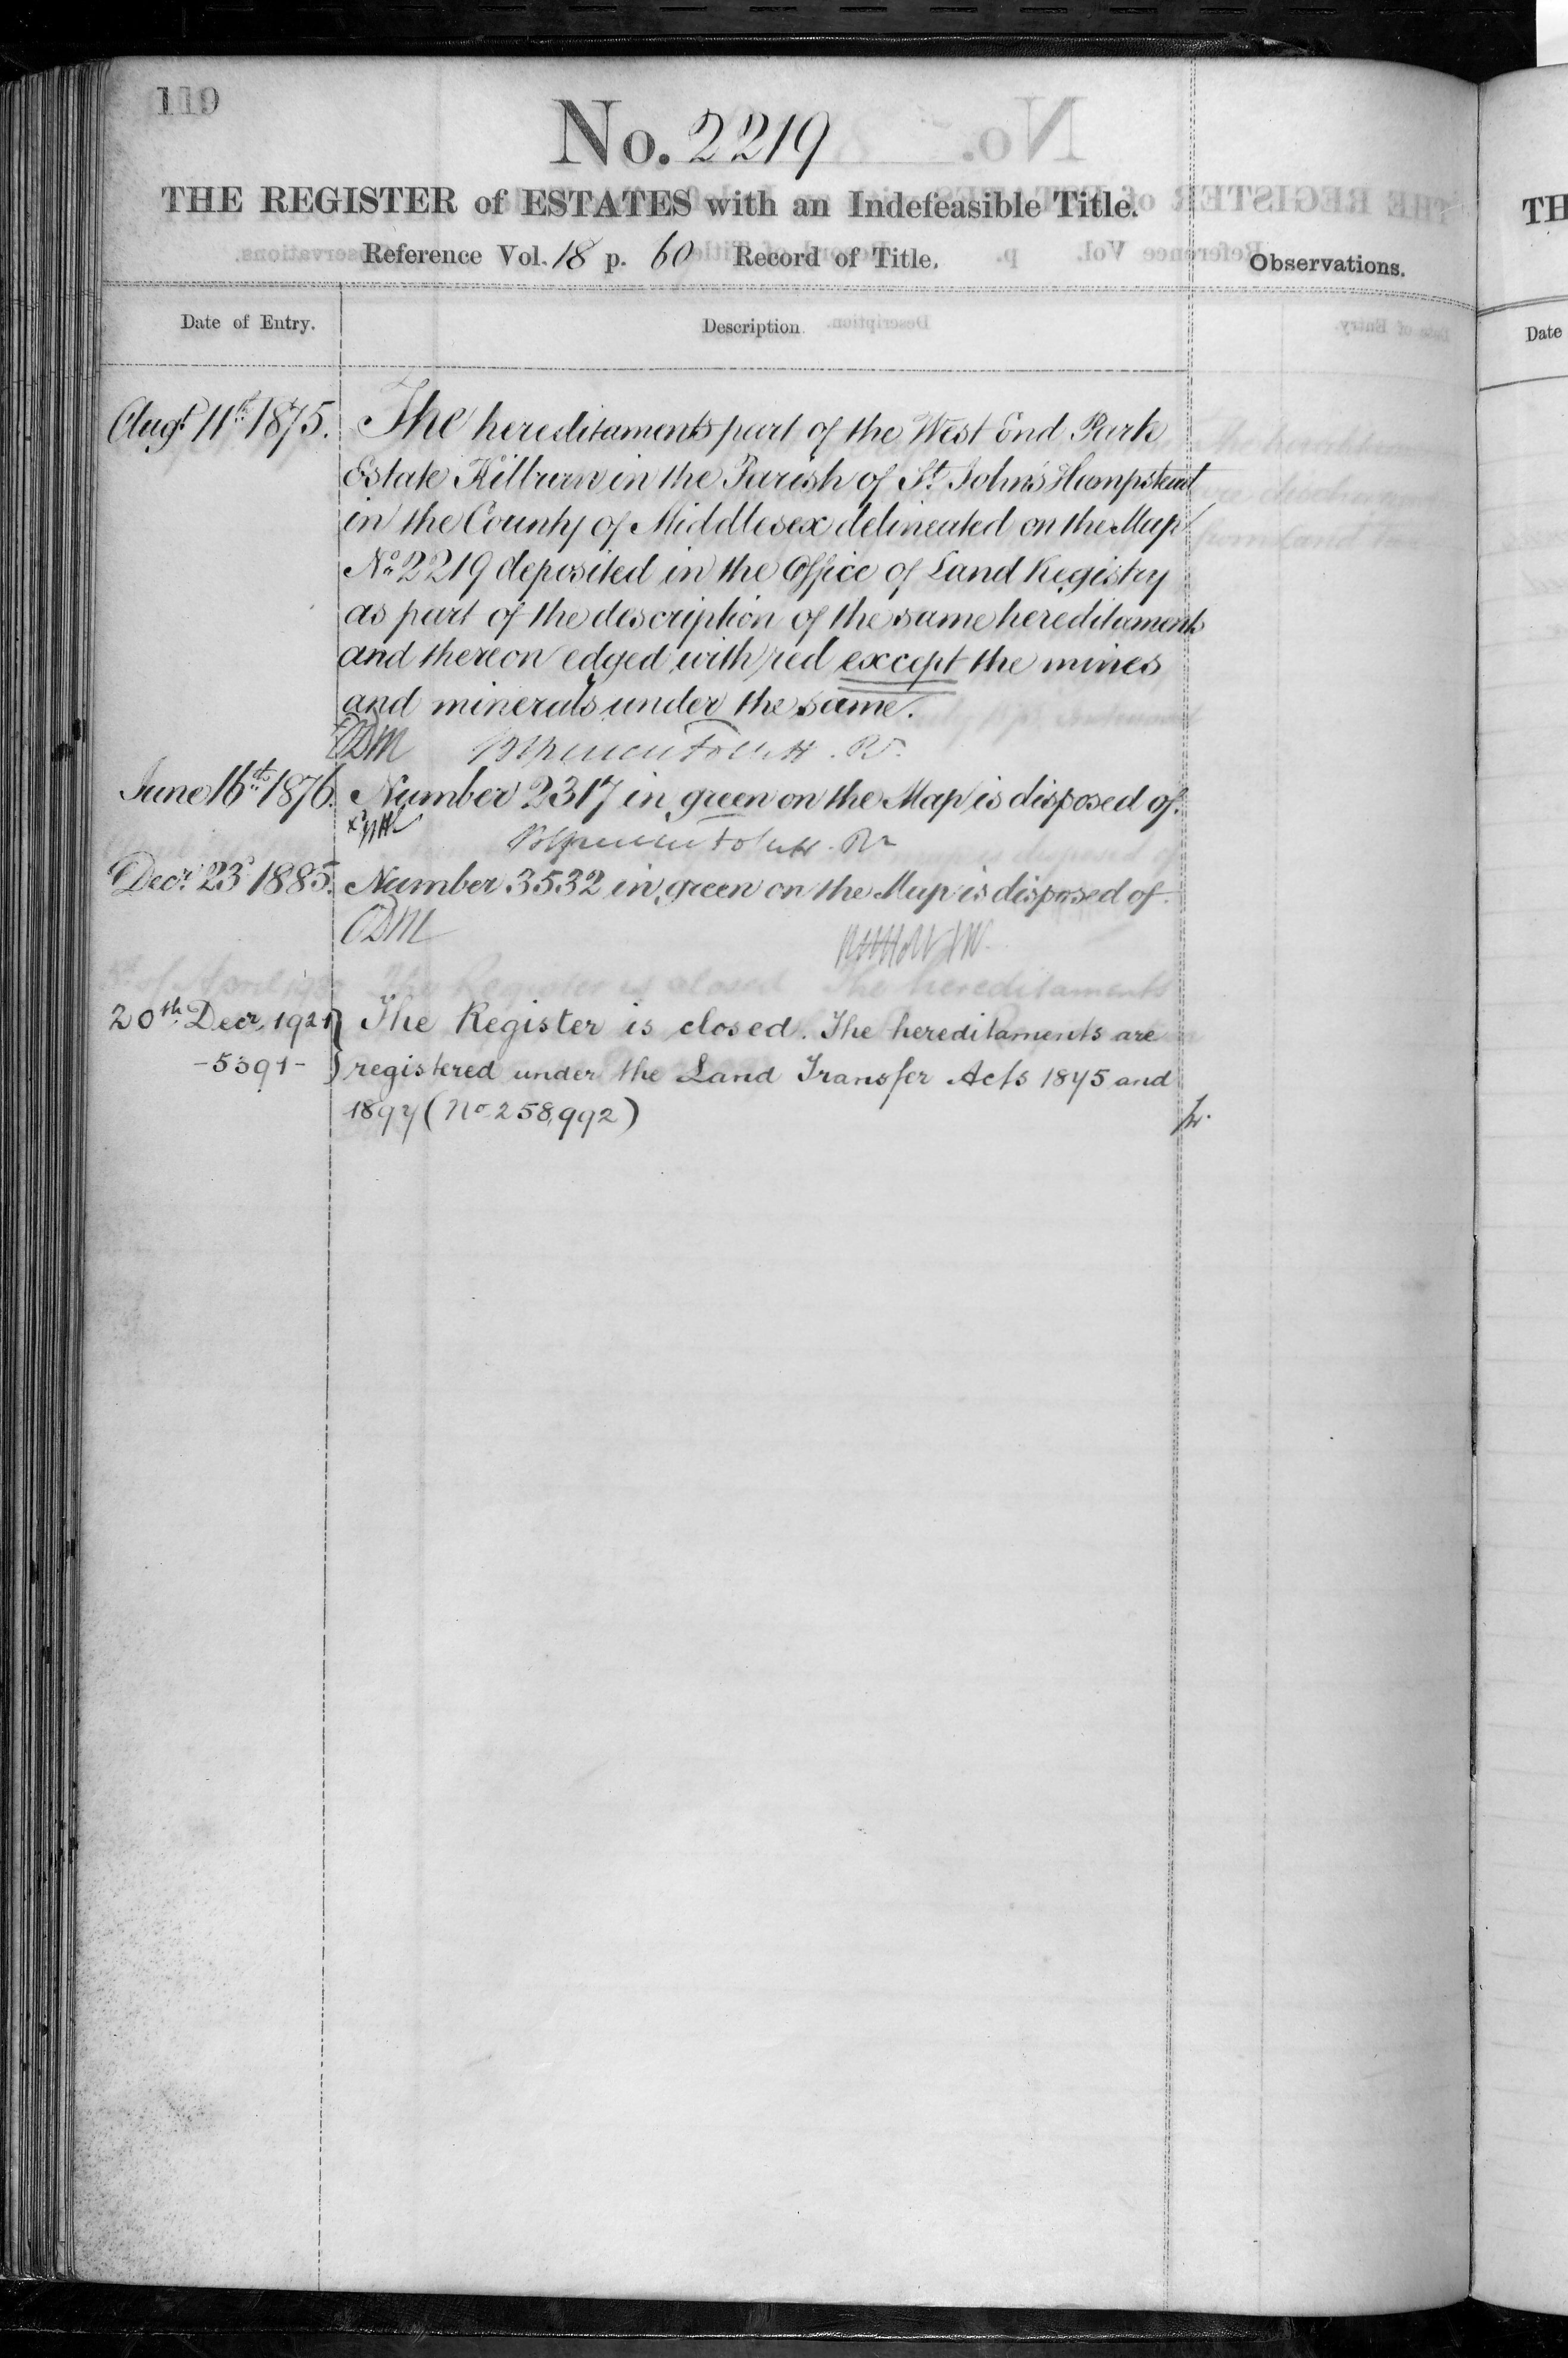 119
No. 2219
THE REGISTER of ESTATES with an Indefeasible Title.
Reference Vol. 18 p. 60 Record of Title.
Observations.
Date of Entry.
Description
Augt 11th 1875. The hereditaments part of the West End Park
Estate Kilburn in the Parish of St. John's Hampstead
in the County of Middlesex delineated on the Map
No 2219 deposited in the Office of Land Registry
as part of the description of the same hereditaments
and thereon edged with red except the mines
and minerals under the same.
June 16th 1876. Number 2317 in green on the Map is disposed of.
Decr 23d 1885. Number 3532 in green on the Map is disposed of.
20th Decr 1921 } The Register is closed. The hereditaments are
-5391- } registered under the Land Transfer Acts 1875 and
1897 (No 258,992)
TH
Date